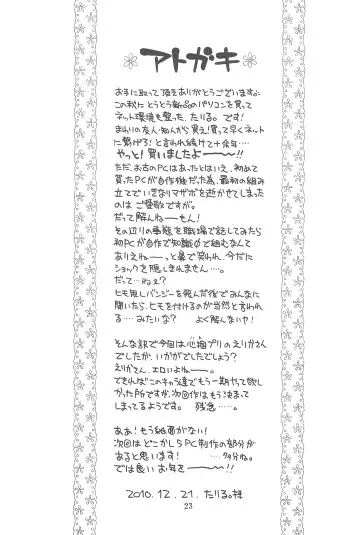 アトガキ
お手に取って頂きありがとうございます。
この秋に とうとう新品のパソコンを買って
ネット環境も整った、たりる。です!
まわりの友人・知人から買え!買って早くネット
に繋げろ!と言われ続けて十余年…
やっと!買いましたよーーー〜!!
ただ、お古のPCはあったとはいえ、初めて
買ったPCが自作機だった為、最初の組み
立てで いきなりマザボを逝かせてしまった
のは ご愛敬ですが。
だって解んねーもん!
その辺りの事態を職場で話してみたら
初PCが自作で知識0で組むなんて
ありえねーっと鼻で笑われ、今だに
ショックを隠しきれません…。
だって…ねぇ?
ヒモ無しバンジーを飛んだ後でみんなに
聞いたら、ヒモを付けるのが当然と言われ
る…‥みたいな? よく解んないや!
そんな訳で今回は心抱プリのえりかさん
でしたが、いかがでしたでしょう?
えりかさん、エロいよねー。
できれば このキャラ達でもう一期やって欲し
かった所ですが、次回作はもう決まって
しまってるようです。 残念……。
ああ!もう紙面がない!
次回は どこかしらPC制作の部分が
あると思います! …‥多分ね。
では良い お年をーーー〜!!
2010. 12. 21. たりる。拝
23